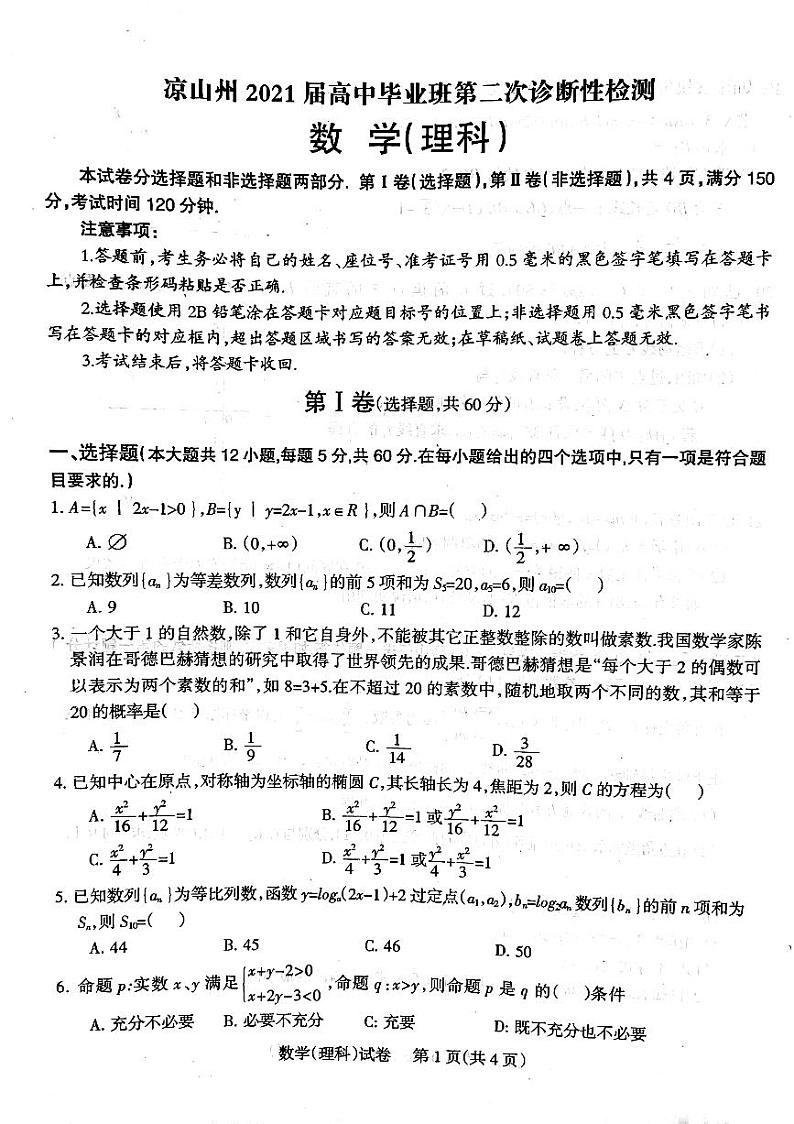 凉山州 2021 届高中毕业班第二次诊断性检测
数 学(理科)
本试卷分选择题和非选择题两部分. 第Ⅰ卷(选择题),第Ⅱ卷(非选择题),共 4 页,满分 150
分,考试时间 120 分钟.
注意事项:
1.答题前,考生务必将自己的姓名、座位号、准考证号用 0.5 毫米的黑色签字笔填写在答题卡
上,并检查条形码粘贴是否正确.
2.选择题使用 2B 铅笔涂在答题卡对应题目标号的位置上;非选择题用 0.5 毫米黑色签字笔书
写在答题卡的对应框内,超出答题区域书写的答案无效;在草稿纸、试题卷上答题无效.
3.考试结束后,将答题卡收回.
第Ⅰ卷(选择题,共 60 分)
一、选择题(本大题共 12 小题,每题 5 分,共 60 分.在每小题给出的四个选项中,只有一项是符合题
目要求的.)
1. A={x | 2x-1>0 },B={y | y=2x-1,x∈R },则 A∩B=( )
A. ∅ B. (0,+∞) C. (0,1/2) D. (1/2,+∞)
2. 已知数列{aₙ}为等差数列,数列{aₙ}的前 5 项和为 S₅=20,a₅=6,则 a₁₀=( )
A. 9 B. 10 C. 11 D. 12
3. 一个大于 1 的自然数,除了 1 和它自身外,不能被其它正整数整除的数叫做素数.我国数学家陈
景润在哥德巴赫猜想的研究中取得了世界领先的成果.哥德巴赫猜想是“每个大于 2 的偶数可
以表示为两个素数的和”,如 8=3+5.在不超过 20 的素数中,随机地取两个不同的数,其和等于
20 的概率是( )
A. 1/7 B. 1/9 C. 1/14 D. 3/28
4. 已知中心在原点,对称轴为坐标轴的椭圆 C,其长轴长为 4,焦距为 2,则 C 的方程为( )
A. x²/16+y²/12=1 B. x²/16+y²/12=1 或 y²/16+x²/12=1
C. x²/4+y²/3=1 D. x²/4+y²/3=1 或 y²/4+x²/3=1
5. 已知数列{aₙ}为等比列数,函数 y=logₐ(2x-1)+2 过定点(a₁,a₂),bₙ=log₂aₙ 数列{bₙ}的前 n 项和为
Sₙ,则 S₁₀=( )
A. 44 B. 45 C. 46 D. 50
6. 命题 p:实数 x、y 满足{x+y-2>0 x+2y-3<0,命题 q:x>y,则命题 p 是 q 的( )条件
A. 充分不必要 B. 必要不充分 C: 充要 D: 既不充分也不必要
数学(理科)试卷 第 1 页(共 4 页)